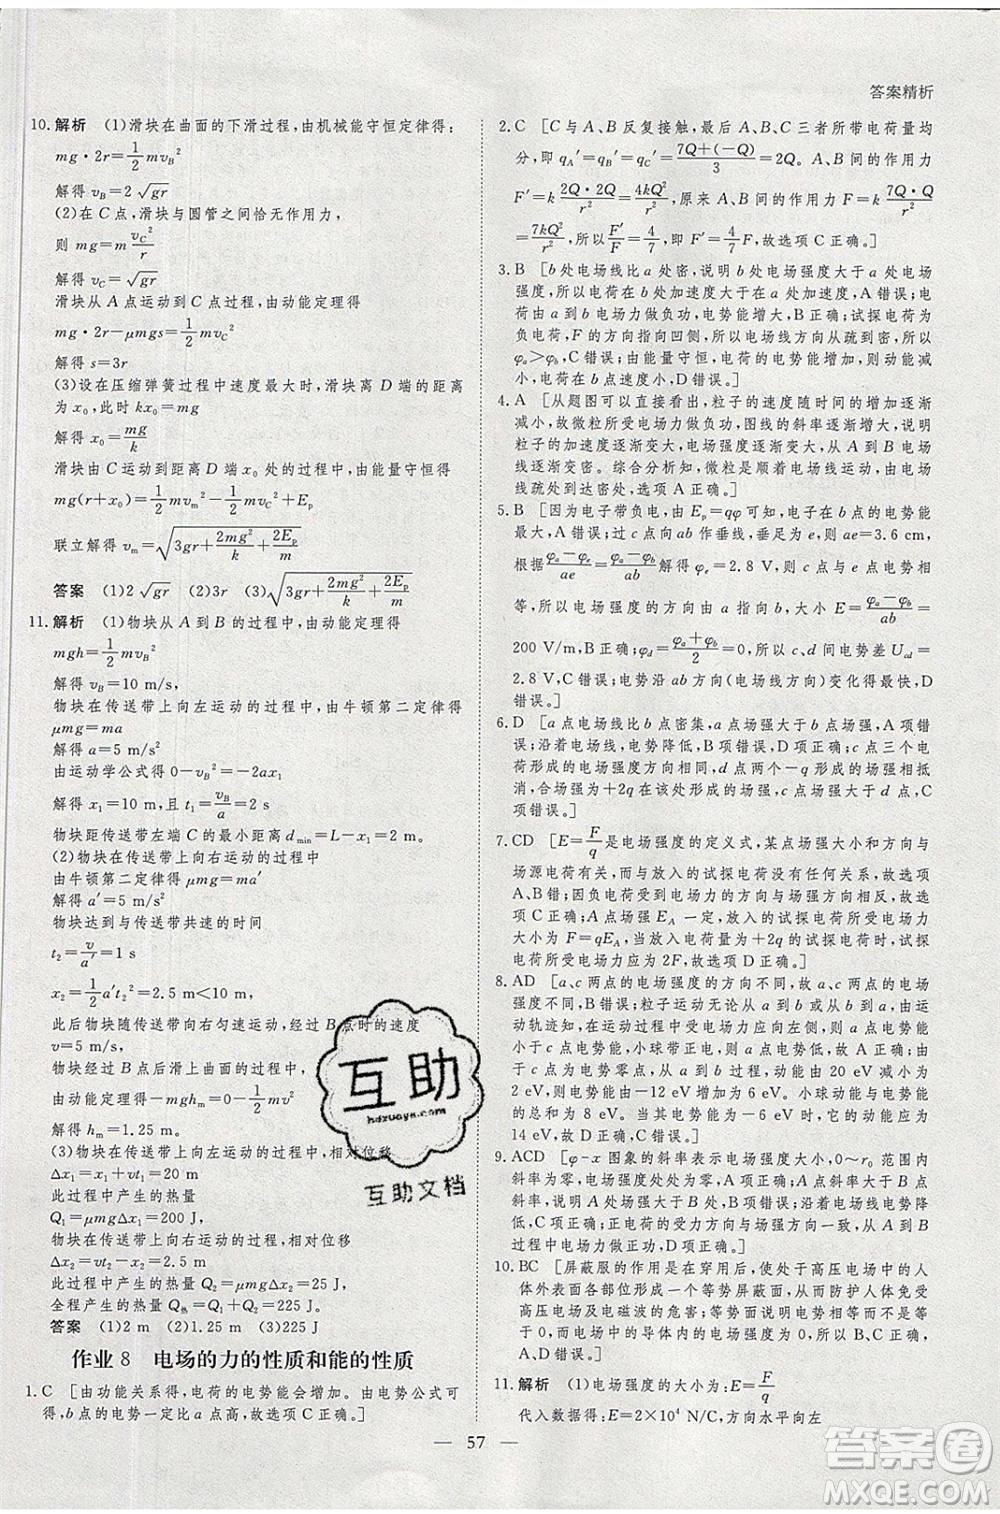 答案精析
10. 解析 (1)滑块在曲面的下滑过程,由机械能守恒定律得:
mg·2r=\frac{1}{2}mv_B^2
解得 v_B=2\sqrt{gr}
(2)在 C 点,滑块与圆管之间恰无作用力,
则 mg=m\frac{v_C^2}{r}
解得 v_C=\sqrt{gr}
滑块从 A 点运动到 C 点过程,由动能定理得
mg·2r-μmgs=\frac{1}{2}mv_C^2
解得 s=3r
(3)设在压缩弹簧过程中速度最大时,滑块离 D 端的距离
为 x_0,此时 kx_0=mg
解得 x_0=\frac{mg}{k}
滑块由 C 运动到距离 D 端 x_0 处的过程中,由能量守恒得
mg(r+x_0)=\frac{1}{2}mv_m^2-\frac{1}{2}mv_C^2+E_p
联立解得 v_m=\sqrt{3gr+\frac{2mg^2}{k}-\frac{2E_p}{m}}
答案 (1)2\sqrt{gr} (2)3r (3)\sqrt{3gr+\frac{2mg^2}{k}-\frac{2E_p}{m}}
11. 解析 (1)物块从 A 到 B 的过程中,由动能定理得
mgh=\frac{1}{2}mv_B^2
解得 v_B=10 m/s,
物块在传送带上向左运动的过程中,由牛顿第二定律得
μmg=ma
解得 a=5 m/s^2
由运动学公式得 0-v_B^2=-2ax_1
解得 x_1=10 m,且 t_1=\frac{v_B}{a}=2 s
物块距传送带左端 C 的最小距离 d_min=L-x_1=2 m。
(2)物块在传送带上向右运动的过程中
由牛顿第二定律得 μmg=ma'
解得 a'=5 m/s^2
物块达到与传送带共速的时间
t_2=\frac{v}{a'}=1 s
x_2=\frac{1}{2}a't_2^2=2.5 m<10 m,
此后物块随传送带向右匀速运动,经过 B 点时的速度
v=5 m/s。
物块在光滑曲面的过程
mgh_m=\frac{1}{2}mv^2
解得 h_m=1.25 m。
(3)物块在传送带上向左运动的过程中,相对位移
Δx_1=x_1+vt_1=20 m
此过程中产生的热量
Q_1=μmgΔx_1=200 J,
物块在传送带上向右运动的过程中,相对位移
Δx_2=vt_2-x_2=2.5 m
此过程中产生的热量 Q_2=μmgΔx_2=25 J,
全程产生的热量 Q_热=Q_1+Q_2=225 J。
答案 (1)2 m (2)1.25 m (3)225 J
作业 8 电场的力的性质和能的性质
1. C [由功能关系得,电荷的电势能会增加。由电势公式可
得,b 点的电势一定比 a 点高,故选 C。]
2. C [C 与 A、B 反复接触,最后 A、B、C 三者所带电荷量均
分,即 q_A'=q_B'=q_C'=\frac{7Q+(-Q)}{3}=2Q。A、B 间的作用力
F'=k\frac{2Q·2Q}{r^2}=\frac{4kQ^2}{r^2},原来 A、B 间的作用力 F=k\frac{7Q·Q}{r^2}
=\frac{7kQ^2}{r^2},所以\frac{F'}{F}=\frac{4}{7},即 F'=\frac{4}{7}F,故选项 C 正确。]
3. B [b 处电场线比 a 处密,说明 b 处电场强度大于 a 处电场
强度,所以电荷在 b 处加速度大于 a 处加速度,A 错误;电
荷由 a 到 b 电场力做负功,电势能增加,B 正确;试探电荷为
负电荷,F 的方向指向凹侧,所以电场线方向从疏到密,所以
φ_a>φ_b,C 错误;由能量守恒,电荷的电势能增加,所以动能减
小,在 b 点速度小,D 错误。]
4. A [从题图可以直接看出,粒子的速度随时间的增大逐渐
减小,故微粒所受电场力做负功,图线的斜率逐渐增大,说明
粒子的加速度逐渐变大,电场强度逐渐变大,从 A 到 B 电场
线逐渐变密。综合分析知,微粒是顺着电场线运动,由电场
线疏处到达密处,故选项 A 正确。]
5. B [因为电子带负电,由 E_p=qφ可知,电子在 b 点的电势能
最大,A 错误;过 c 点向 ab 作垂线,垂足为 e,则 ae=3.6 cm,
则\frac{φ_a-φ_e}{ae}=\frac{φ_a-φ_b}{ab},解得 φ_e=2.8 V,即 c 点电势与 e 点相
等,所以 c 点电势为 2.8 V,故电场强度大小 E=\frac{φ_a-φ_b}{ab}=
200 V/m,B 正确;φ_d=\frac{φ_a+φ_b}{2}=0,所以 c、d 间电势差 U_cd=
2.8 V,C 错误。电势沿 ab 方向(电场线方向)变化得最快,D
错误。]
6. D [a 点电场线比 b 点密集,a 点场强大于 b 点场强,A 项错
误;沿着电场线,电势降低,B、C 项错误;由于 a 点三个电
荷形成的电场场强大于零,说明 a 处-q 产生的场强相抵
消,合场强为+2q 在该处形成的场强,b 点场强也大于零,D
项错误。]
7. CD [E=\frac{F}{q}是电场强度的定义式,某点场强大小和方向与
场源电荷有关,而与放入的试探电荷没有任何关系,故选项
A、B错;因负电荷受到电场力的方向与场强方向相反,故选
项 C 正确;A 点场强 E_A 一定,放入的试探电荷所受电场力
大小为 F=qE_A,当放入电荷量为+2q 的试探电荷时,试探
电荷所受电场力应为 2F,故选项 D 正确。]
8. AD [a、c 两点的电场强度的方向不同,故 a、c 两点的电场
强度不同,B 错误;粒子运动无论从 a 到 b 或从 b 到 a,由运
动轨迹知,在运动过程中受电场力方向应向左侧,则小球在 b
点的电势能大于 a 点电势能,小球带正电,A 正确,C 错误;
在 a 点电势能为零,所以 a 点电势零点,在 b 点的动能为
2 eV,则 b 点的电势能由-12 eV 增至+12 eV。小球动能与电势能
的总和为 2 eV+12 eV=14 eV,可知在 a 点的动能应为
14 eV,故 D 正确。]
9. ACD [φ-x 图象的斜率表示电场强度大小,0~r_0 范围内
斜率,即场强大于 A 处,故 B 项错误;沿着电场线电势降低,
C 项正确;正电荷的受力方向与场强方向一致,故从 A 到 B
的过程中电场力做正功,D 项正确。]
10. BC [屏蔽服的作用是在穿用后,使处于高压电场中的人
体外表面各部位形成一个等势屏蔽面,从而防护人体免受
高压电场及电磁波的危害;等势面说明电势相等而不是等
于零,A 错误,B、C 正确;电场中的导体内电场强度为零,D
错误。]
11. 解析 (1)电场强度的大小为:E=\frac{F}{q}
代入数据得:E=2×10^4 N/C,方向水平向左
57
互助
hdzuoye.com
互助文档
答案卷